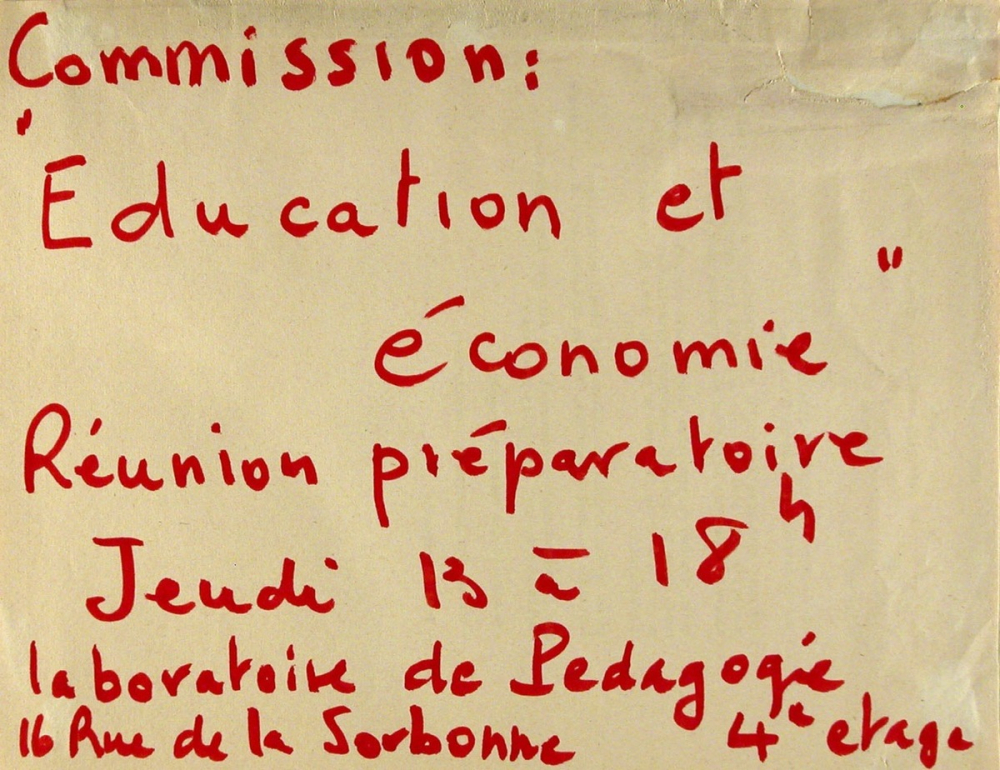 Commission:
"Education et
économie"
Réunion préparatoire
Jeudi 13 à 18h
laboratoire de Pedagogie
16 Rue de la Sorbonne 4e etage